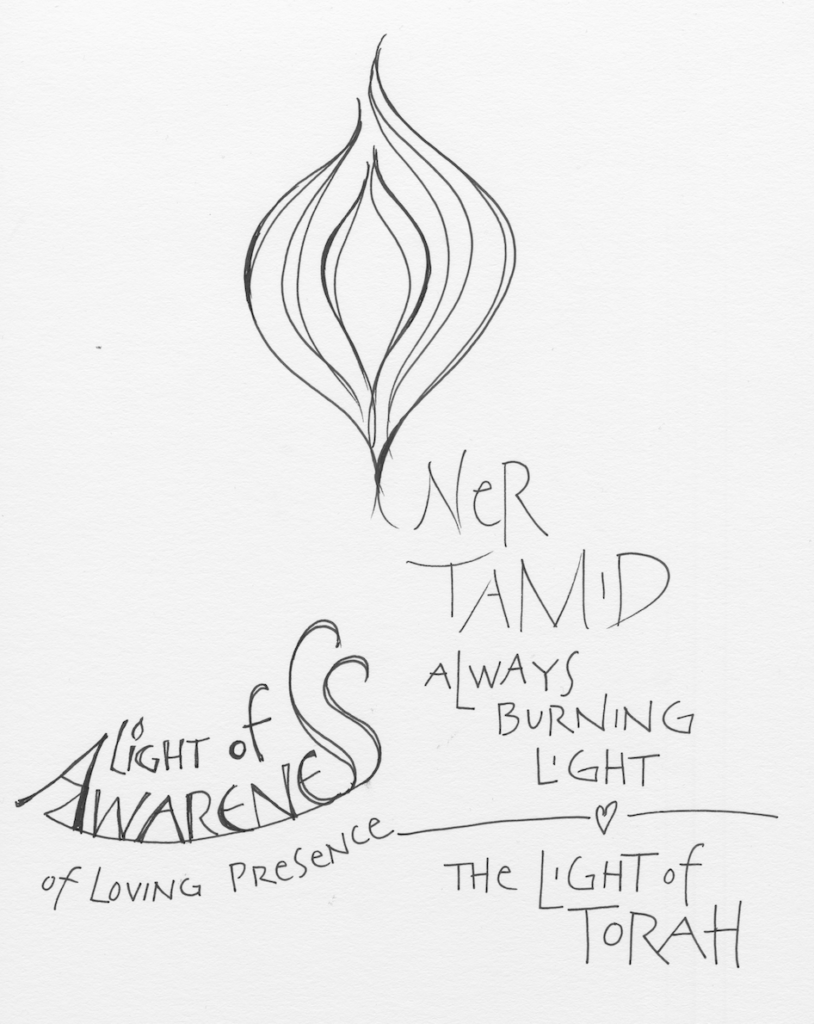 NeR
TAMiD
ALWAYS
BURNING
LiGHT
LiGHT of
AWARENESS
of LOVING PReSeNCe
THe LiGHT of
ToRAH